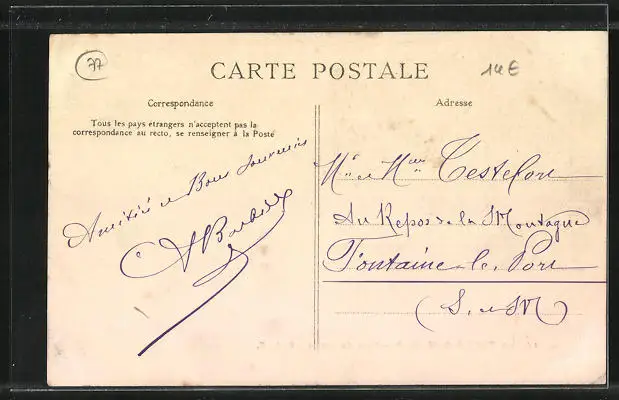 77
14€
CARTE POSTALE
Correspondance
Tous les pays étrangers n'acceptent pas la
correspondance au recto, se renseigner à la Poste
Amitiés et Bons Souvenirs
Adresse
Mr et Mme Testefort
Au Repos de la Montagne
Fontaine-le-Port
(S. et M)